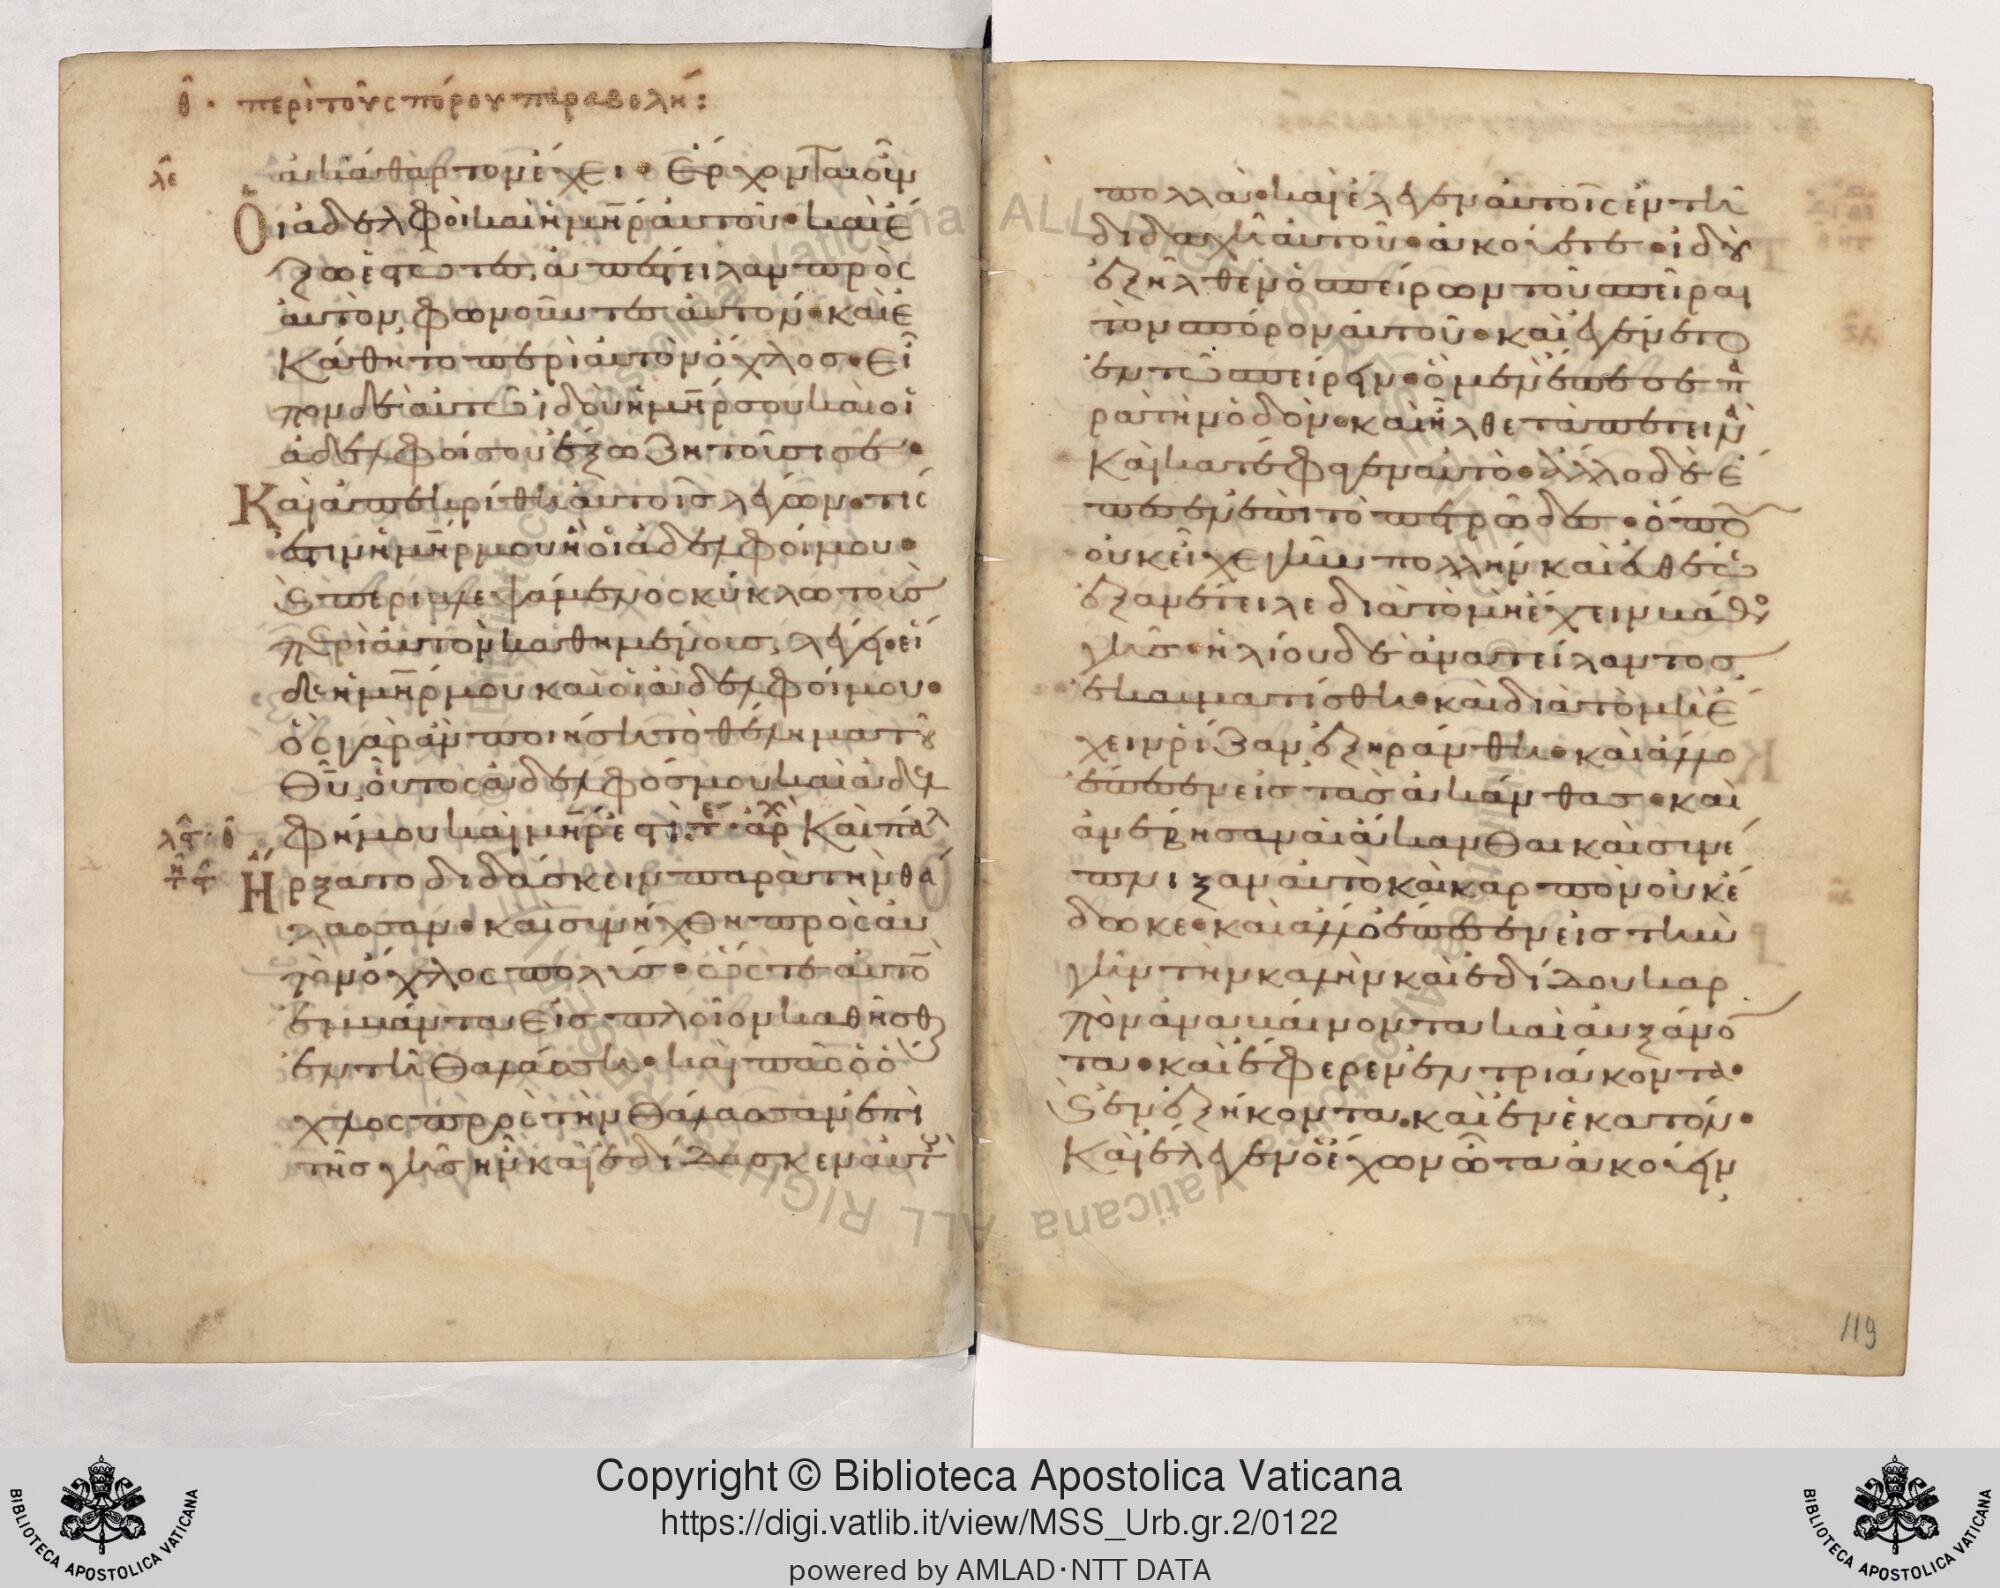 θ · περὶ τοῦ σπόρου παραβολή:
λε
ἀκάθαρτον ἔχει · Ἔρχονται οὖν
Οἱ ἀδελφοὶ καὶ ἡ μηρ αὐτοῦ · καὶ ἔ
ξω ἑστῶτες, ἀπέστειλαν πρὸς
αὐτὸν φωνοῦντες αὐτόν · καὶ ἐ
κάθητο περὶ αὐτὸν ὄχλος · εἶ
πον δὲ αὐτῶ ἰδοὺ ἡ μηρ σου καὶ οἱ
ἀδελφοί σου ἔξω ζητοῦσι σε ·
Καὶ ἀπεκρίθη αὐτοῖς λέγων · τίς
ἐστιν ἡ μηρ μου ἢ οἱ ἀδελφοί μου ·
καὶ περιβλεψάμενος κύκλω τοὺς
περὶ αὐτὸν καθημένους, λέγει · εἴ
δε ἡ μηρ μου καὶ οἱ ἀδελφοί μου ·
ὃς γὰρ ἂν ποιήση τὸ θέλημα τοῦ
θυ, οὗτος ἀδελφός μου καὶ ἀδελ
φή μου καὶ μηρ ἐστί. τε · αρχ Καὶ πάλ
λϛ · θ
Ἤρξατο διδάσκειν παρὰ τὴν θά
λασσαν · καὶ συνήχθη πρὸς αὐ
τὸν ὄχλος πολύς · ὥστε αὐτὸν
ἐμβάντα εἰς πλοῖον καθῆσθαι
ἐν τῆ θαλάσση · καὶ πᾶς ὁ ὄ
χλος πρὸς τὴν θάλασσαν ἐπὶ
τῆς γῆς ἦν καὶ ἐδίδασκεν αὐτοὺς
πολλά · καὶ ἔλεγεν αὐτοῖς ἐν τῆ
διδαχῆ αὐτοῦ · ἀκούετε · ἰδοὺ
ἐξῆλθεν ὁ σπείρων τοῦ σπεῖραι
τὸν σπόρον αὐτοῦ · καὶ ἐγένετο
ἐν τῶ σπείρειν · ὃ μὲν ἔπεσε πα
ρὰ τὴν ὁδόν · καὶ ἦλθε τὰ πετεινὰ
Καὶ κατέφαγεν αὐτό · ἄλλο δὲ ἔ
πεσεν ἐπὶ τὸ πετρῶδες · ὅπου
οὐκ εἶχε γῆν πολλήν καὶ εὐθέως
ἐξανέτειλε διὰ τὸ μὴ ἔχειν βάθος
γῆς · ἡλίου δὲ ἀνατείλαντος
ἐκαυματίσθη · καὶ διὰ τὸ μὴ ἔ
χειν ῥίζαν ἐξηράνθη · καὶ ἄλλο
ἔπεσεν εἰς τὰς ἀκάνθας · καὶ
ἀνέβησαν αἱ ἄκανθαι καὶ συνέ
πνιξαν αὐτὸ καὶ καρπὸν οὐκ ἔ
δωκε · καὶ ἄλλο ἔπεσεν εἰς τὴν
γῆν τὴν καλὴν καὶ ἐδίδου καρ
πὸν ἀναβαίνοντα καὶ αὐξάνον
τα · καὶ ἔφερεν ἐν τριάκοντα ·
καὶ ἐν ἑξήκοντα · καὶ ἐν ἑκατόν ·
Καὶ ἔλεγεν ὁ ἔχων ὦτα ἀκούειν
119
Copyright © Biblioteca Apostolica Vaticana
https://digi.vatlib.it/view/MSS_Urb.gr.2/0122
powered by AMLAD·NTT DATA
BIBLIOTECA APOSTOLICA VATICANA
BIBLIOTECA APOSTOLICA VATICANA